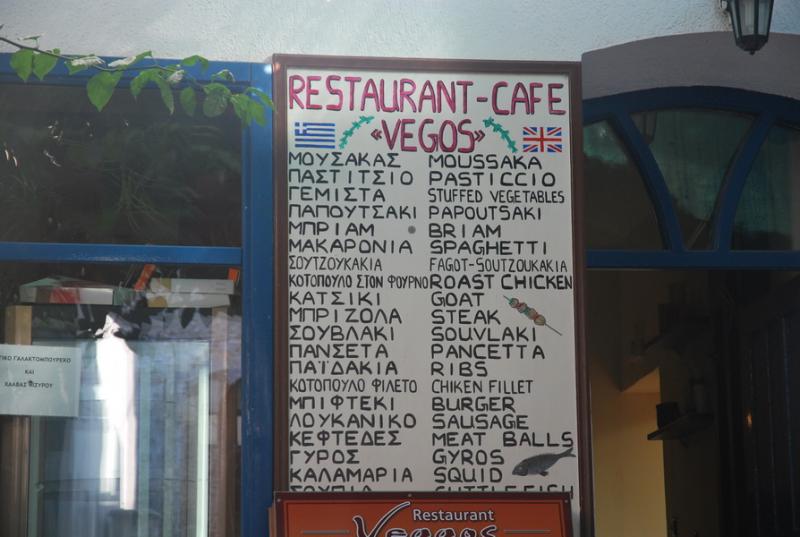 RESTAURANT-CAFE
«VEGOS»
ΜΟΥΣΑΚΑΣ MOUSSAKA
ΠΑΣΤΙΤΣΙΟ PASTICCIO
ΓΕΜΙΣΤΑ STUFFED VEGETABLES
ΠΑΠΟΥΤΣΑΚΙ PAPOUTSAKI
ΜΠΡΙΑΜ BRIAM
ΜΑΚΑΡΟΝΙΑ SPAGHETTI
ΣΟΥΤΖΟΥΚΑΚΙΑ FAGOT-SOUTZOUKAKIA
ΚΟΤΟΠΟΥΛΟ ΣΤΟΝ ΦΟΥΡΝΟ ROAST CHICKEN
ΚΑΤΣΙΚΙ GOAT
ΜΠΡΙΖΟΛΑ STEAK
ΣΟΥΒΛΑΚΙ SOUVLAKI
ΠΑΝΣΕΤΑ PANCETTA
ΠΑΪΔΑΚΙΑ RIBS
ΚΟΤΟΠΟΥΛΟ ΦΙΛΕΤΟ CHIKEN FILLET
ΜΠΙΦΤΕΚΙ BURGER
ΛΟΥΚΑΝΙΚΟ SAUSAGE
ΚΕΦΤΕΔΕΣ MEAT BALLS
ΓΥΡΟΣ GYROS
ΚΑΛΑΜΑΡΙΑ SQUID
ΣΟΥΠΙΑ CUTTLEFISH
Restaurant
ΓΑΛΑΚΤΟΜΠΟΥΡΕΚΟ
ΚΑΙ
ΧΑΛΒΑΣ